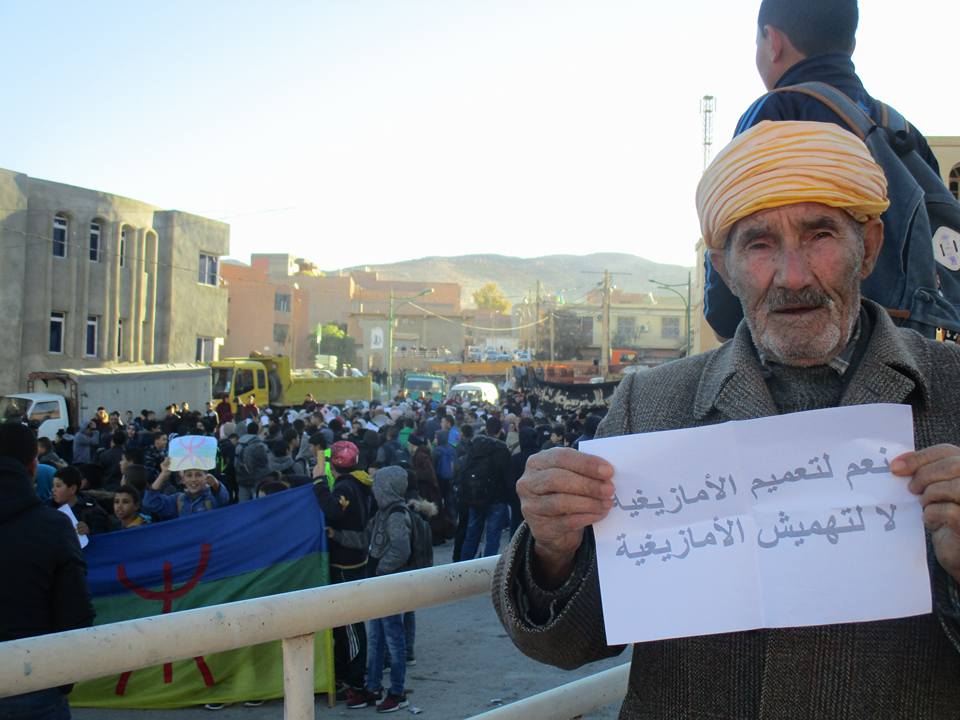 نعم لتعميم الأمازيغية
لا لتهميش الأمازيغية